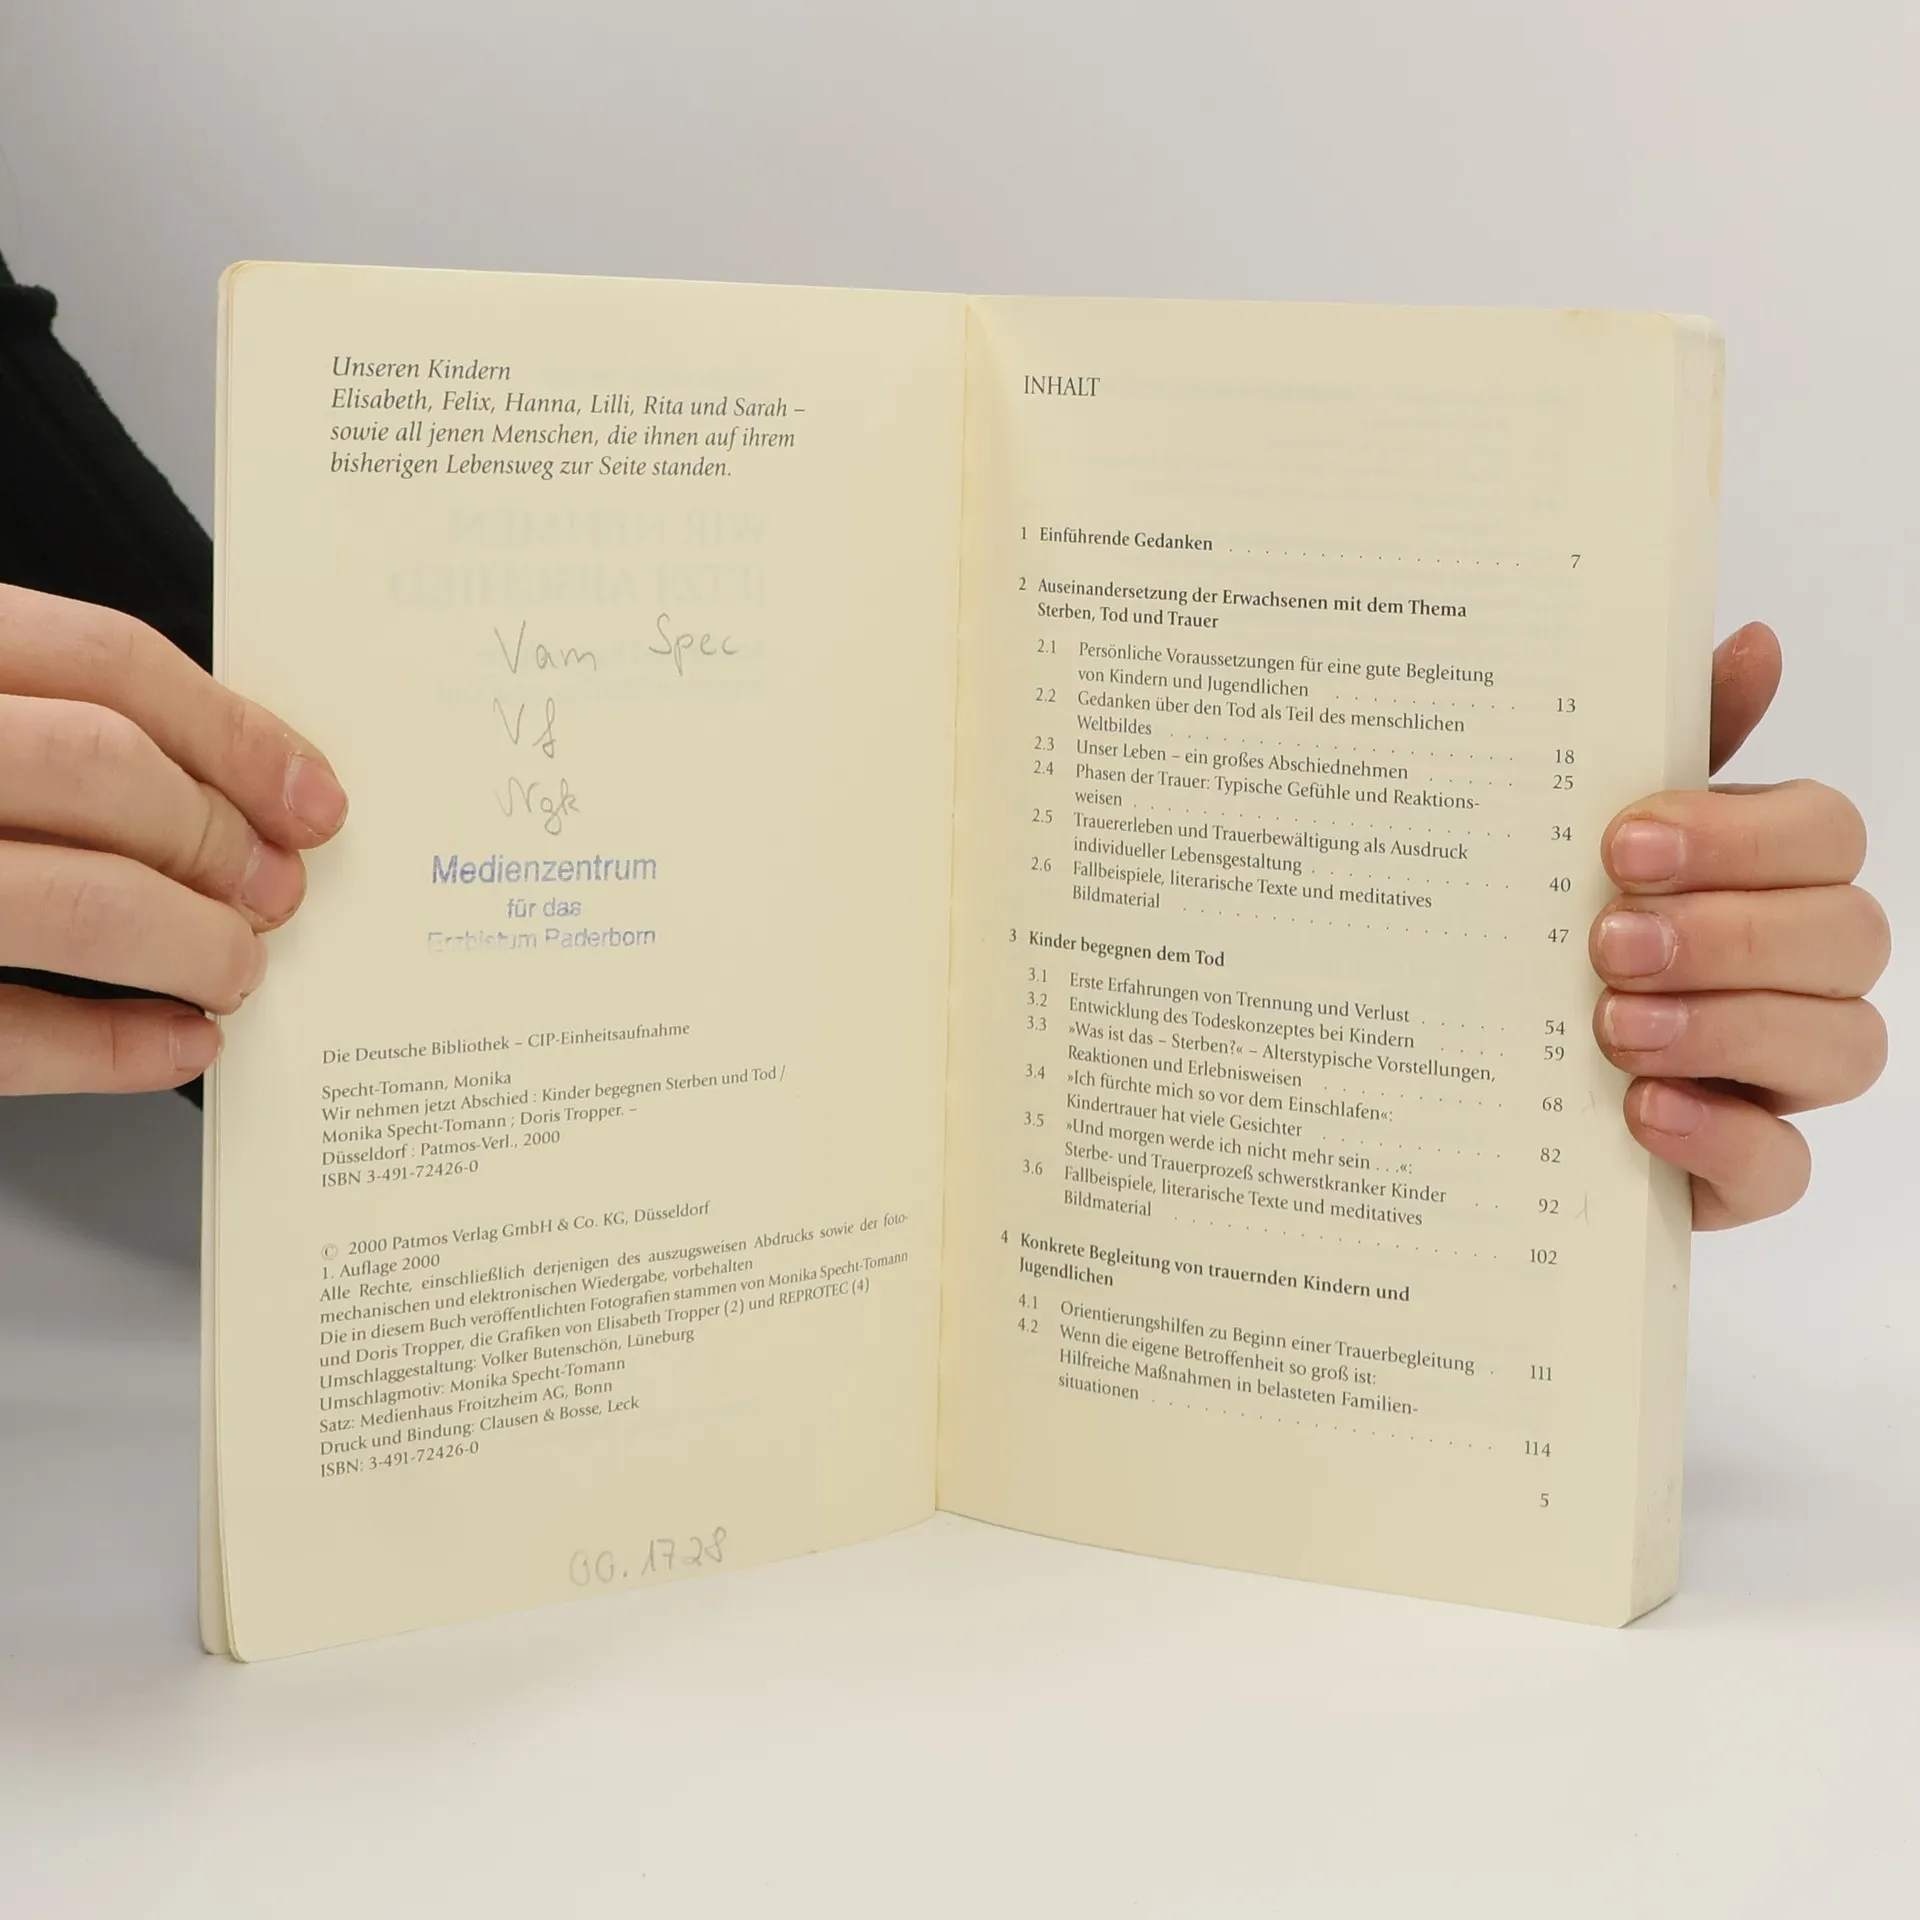 Unseren Kindern
Elisabeth, Felix, Hanna, Lilli, Rita und Sarah –
sowie all jenen Menschen, die ihnen auf ihrem
bisherigen Lebensweg zur Seite standen.
Vam Spec
Medienzentrum
für das
Erzbistum Paderborn
Die Deutsche Bibliothek – CIP-Einheitsaufnahme
Specht-Tomann, Monika
Wir nehmen jetzt Abschied : Kinder begegnen Sterben und Tod /
Monika Specht-Tomann ; Doris Tropper. –
Düsseldorf : Patmos-Verl., 2000
ISBN 3-491-72426-0
© 2000 Patmos Verlag GmbH & Co. KG, Düsseldorf
1. Auflage 2000
Alle Rechte, einschließlich derjenigen des auszugsweisen Abdrucks sowie der foto-
mechanischen und elektronischen Wiedergabe, vorbehalten
Die in diesem Buch veröffentlichten Fotografien stammen von Monika Specht-Tomann
und Doris Tropper, die Grafiken von Elisabeth Tropper (2) und REPROTEC (4)
Umschlaggestaltung: Volker Butenschön, Lüneburg
Umschlagmotiv: Monika Specht-Tomann
Satz: Medienhaus Froitzheim AG, Bonn
Druck und Bindung: Clausen & Bosse, Leck
ISBN: 3-491-72426-0
00.1728
INHALT
1 Einführende Gedanken . . . . . . . . . . . . . . . 7
2 Auseinandersetzung der Erwachsenen mit dem Thema
Sterben, Tod und Trauer
2.1 Persönliche Voraussetzungen für eine gute Begleitung
von Kindern und Jugendlichen . . . . . . . . . 13
2.2 Gedanken über den Tod als Teil des menschlichen
Weltbildes . . . . . . . . . . . . . . . . . 18
2.3 Unser Leben – ein großes Abschiednehmen . . . . . 25
2.4 Phasen der Trauer: Typische Gefühle und Reaktions-
weisen . . . . . . . . . . . . . . . . . . 34
2.5 Trauererleben und Trauerbewältigung als Ausdruck
individueller Lebensgestaltung . . . . . . . . . . 40
2.6 Fallbeispiele, literarische Texte und meditatives
Bildmaterial . . . . . . . . . . . . . . . . 47
3 Kinder begegnen dem Tod
3.1 Erste Erfahrungen von Trennung und Verlust . . . . . 54
3.2 Entwicklung des Todeskonzeptes bei Kindern . . . . 59
3.3 »Was ist das – Sterben?« – Alterstypische Vorstellungen,
Reaktionen und Erlebnisweisen . . . . . . . . . 68
3.4 »Ich fürchte mich so vor dem Einschlafen«:
Kindertrauer hat viele Gesichter . . . . . . . . . 82
3.5 »Und morgen werde ich nicht mehr sein . . .«:
Sterbe- und Trauerprozeß schwerstkranker Kinder . . 92
3.6 Fallbeispiele, literarische Texte und meditatives
Bildmaterial . . . . . . . . . . . . . . . . 102
4 Konkrete Begleitung von trauernden Kindern und
Jugendlichen
4.1 Orientierungshilfen zu Beginn einer Trauerbegleitung . 111
4.2 Wenn die eigene Betroffenheit so groß ist:
Hilfreiche Maßnahmen in belasteten Familien-
situationen . . . . . . . . . . . . . . . . . 114
5